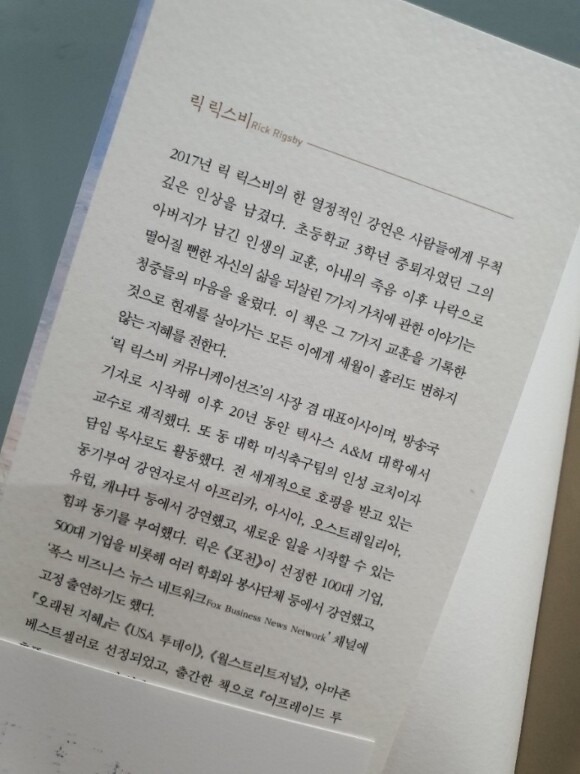 릭 릭스비Rick Rigsby
2017년 릭 릭스비의 한 열정적인 강연은 사람들에게 무척
깊은 인상을 남겼다. 초등학교 3학년 중퇴자였던 그의
아버지가 남긴 인생의 교훈, 아내의 죽음 이후 나락으로
떨어질 뻔한 자신의 삶을 되살린 7가지 가치에 관한 이야기는
청중들의 마음을 울렸다. 이 책은 그 7가지 교훈을 기록한
것으로 현재를 살아가는 모든 이에게 세월이 흘러도 변하지
않는 지혜를 전한다.
'릭 릭스비 커뮤니케이션즈'의 사장 겸 대표이사이며, 방송국
기자로 시작해 이후 20년 동안 텍사스 A&M 대학에서
교수로 재직했다. 또 동 대학 미식축구팀의 인성 코치이자
담임 목사로도 활동했다. 전 세계적으로 호평을 받고 있는
동기부여 강연자로서 아프리카, 아시아, 오스트레일리아,
유럽, 캐나다 등에서 강연했고, 새로운 일을 시작할 수 있는
힘과 동기를 부여했다. 릭은 《포천》이 선정한 100대 기업,
500대 기업을 비롯해 여러 학회와 봉사단체 등에서 강연했고,
'폭스 비즈니스 뉴스 네트워크Fox Business News Network' 채널에
고정 출연하기도 했다.
『오래된 지혜』는 《USA 투데이》, 《월스트리트저널》, 아마존
베스트셀러로 선정되었고, 출간한 책으로 『어프레이드 투